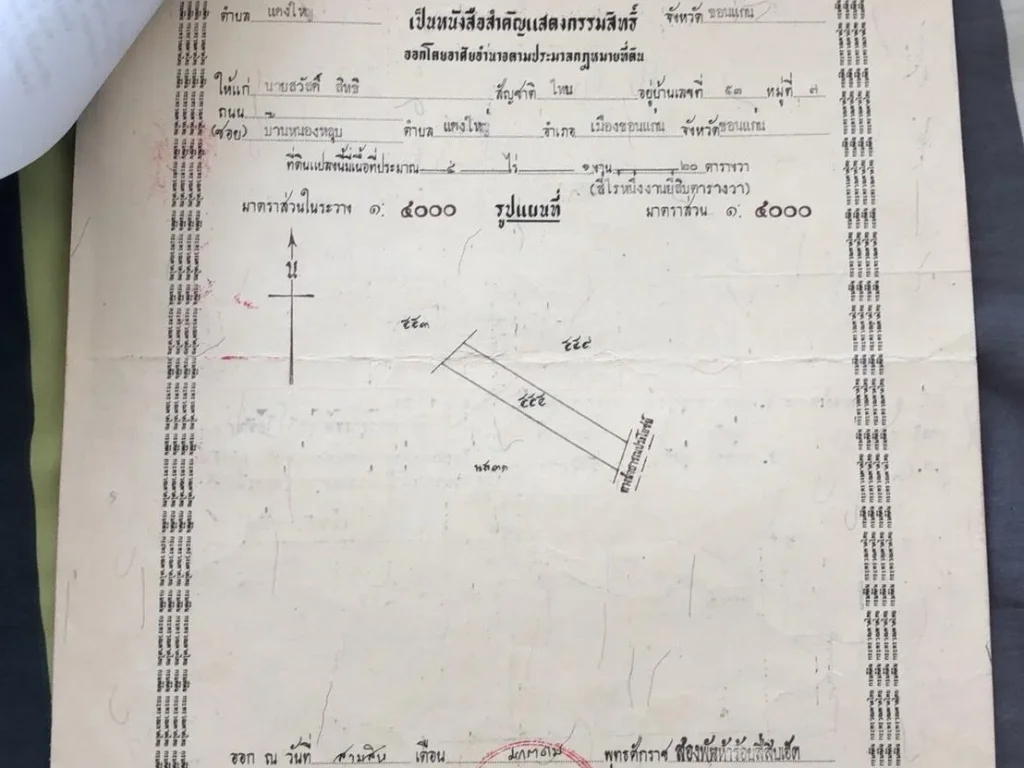 ตำบล แดงใหญ่ จังหวัด ขอนแก่น
เป็นหนังสือสำคัญแสดงกรรมสิทธิ์
ออกโดยอาศัยอำนาจตามประมวลกฎหมายที่ดิน
ให้แก่ นายสวัสดิ์ สิทธิ สัญชาติ ไทย อยู่บ้านเลขที่ ๕๓ หมู่ที่ ๗
ถนน
(ซอย) บ้านหนองหลุบ ตำบล แดงใหญ่ อำเภอ เมืองขอนแก่น จังหวัด ขอนแก่น
ที่ดินแปลงนี้มีเนื้อที่ประมาณ ๔ ไร่ ๑ งาน ๒๐ ตารางวา
(สี่ไร่หนึ่งงานยี่สิบตารางวา)
มาตราส่วนในระวาง ๑: ๔๐๐๐ รูปแผนที่ มาตราส่วน ๑: ๔๐๐๐
น
ทางสาธารณประโยชน์
ออก ณ วันที่ สามสิบ เดือน พุทธศักราช สองพันห้าร้อยสี่สิบเอ็ด